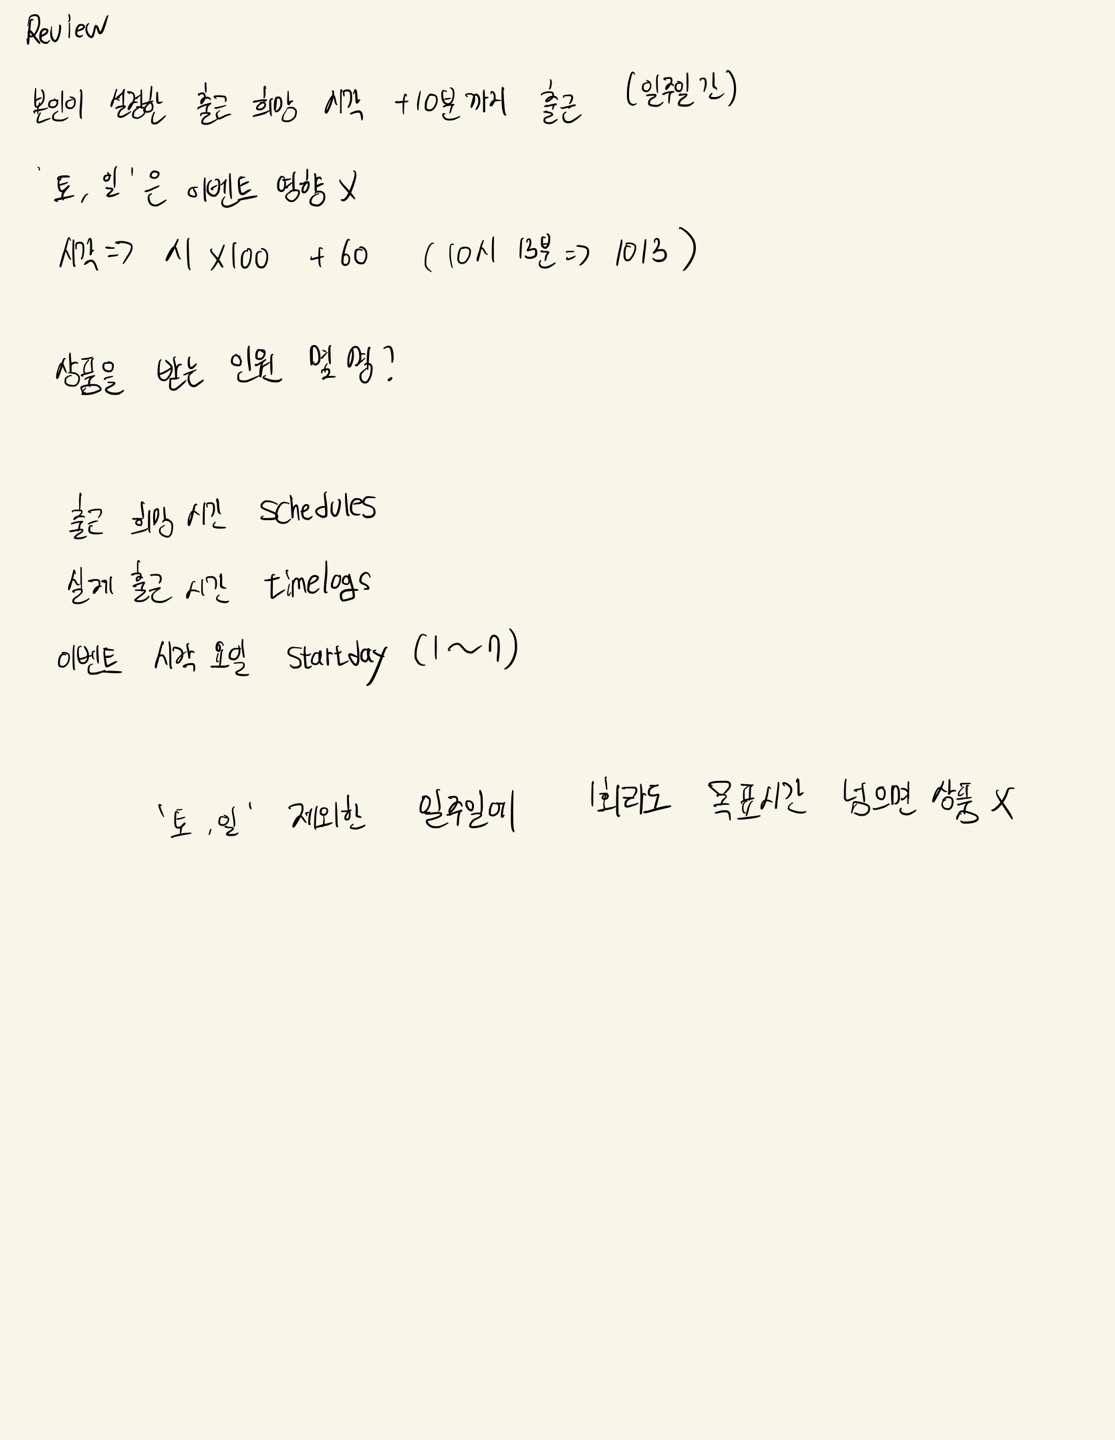 Review
본인이 설정한 출근 희망 시각 +10분까지 출근 (일주일간)
'토, 일'은 이벤트 영향 X
시각 => 시 X100 + 60 (10시 13분 => 1013)
상품을 받는 인원 몇 명?
출근 희망 시간 schedules
실제 출근 시간 timelogs
이벤트 시작 요일 startday (1~7)
'토,일' 제외한 일주일에 1회라도 목표시간 넘으면 상품 X